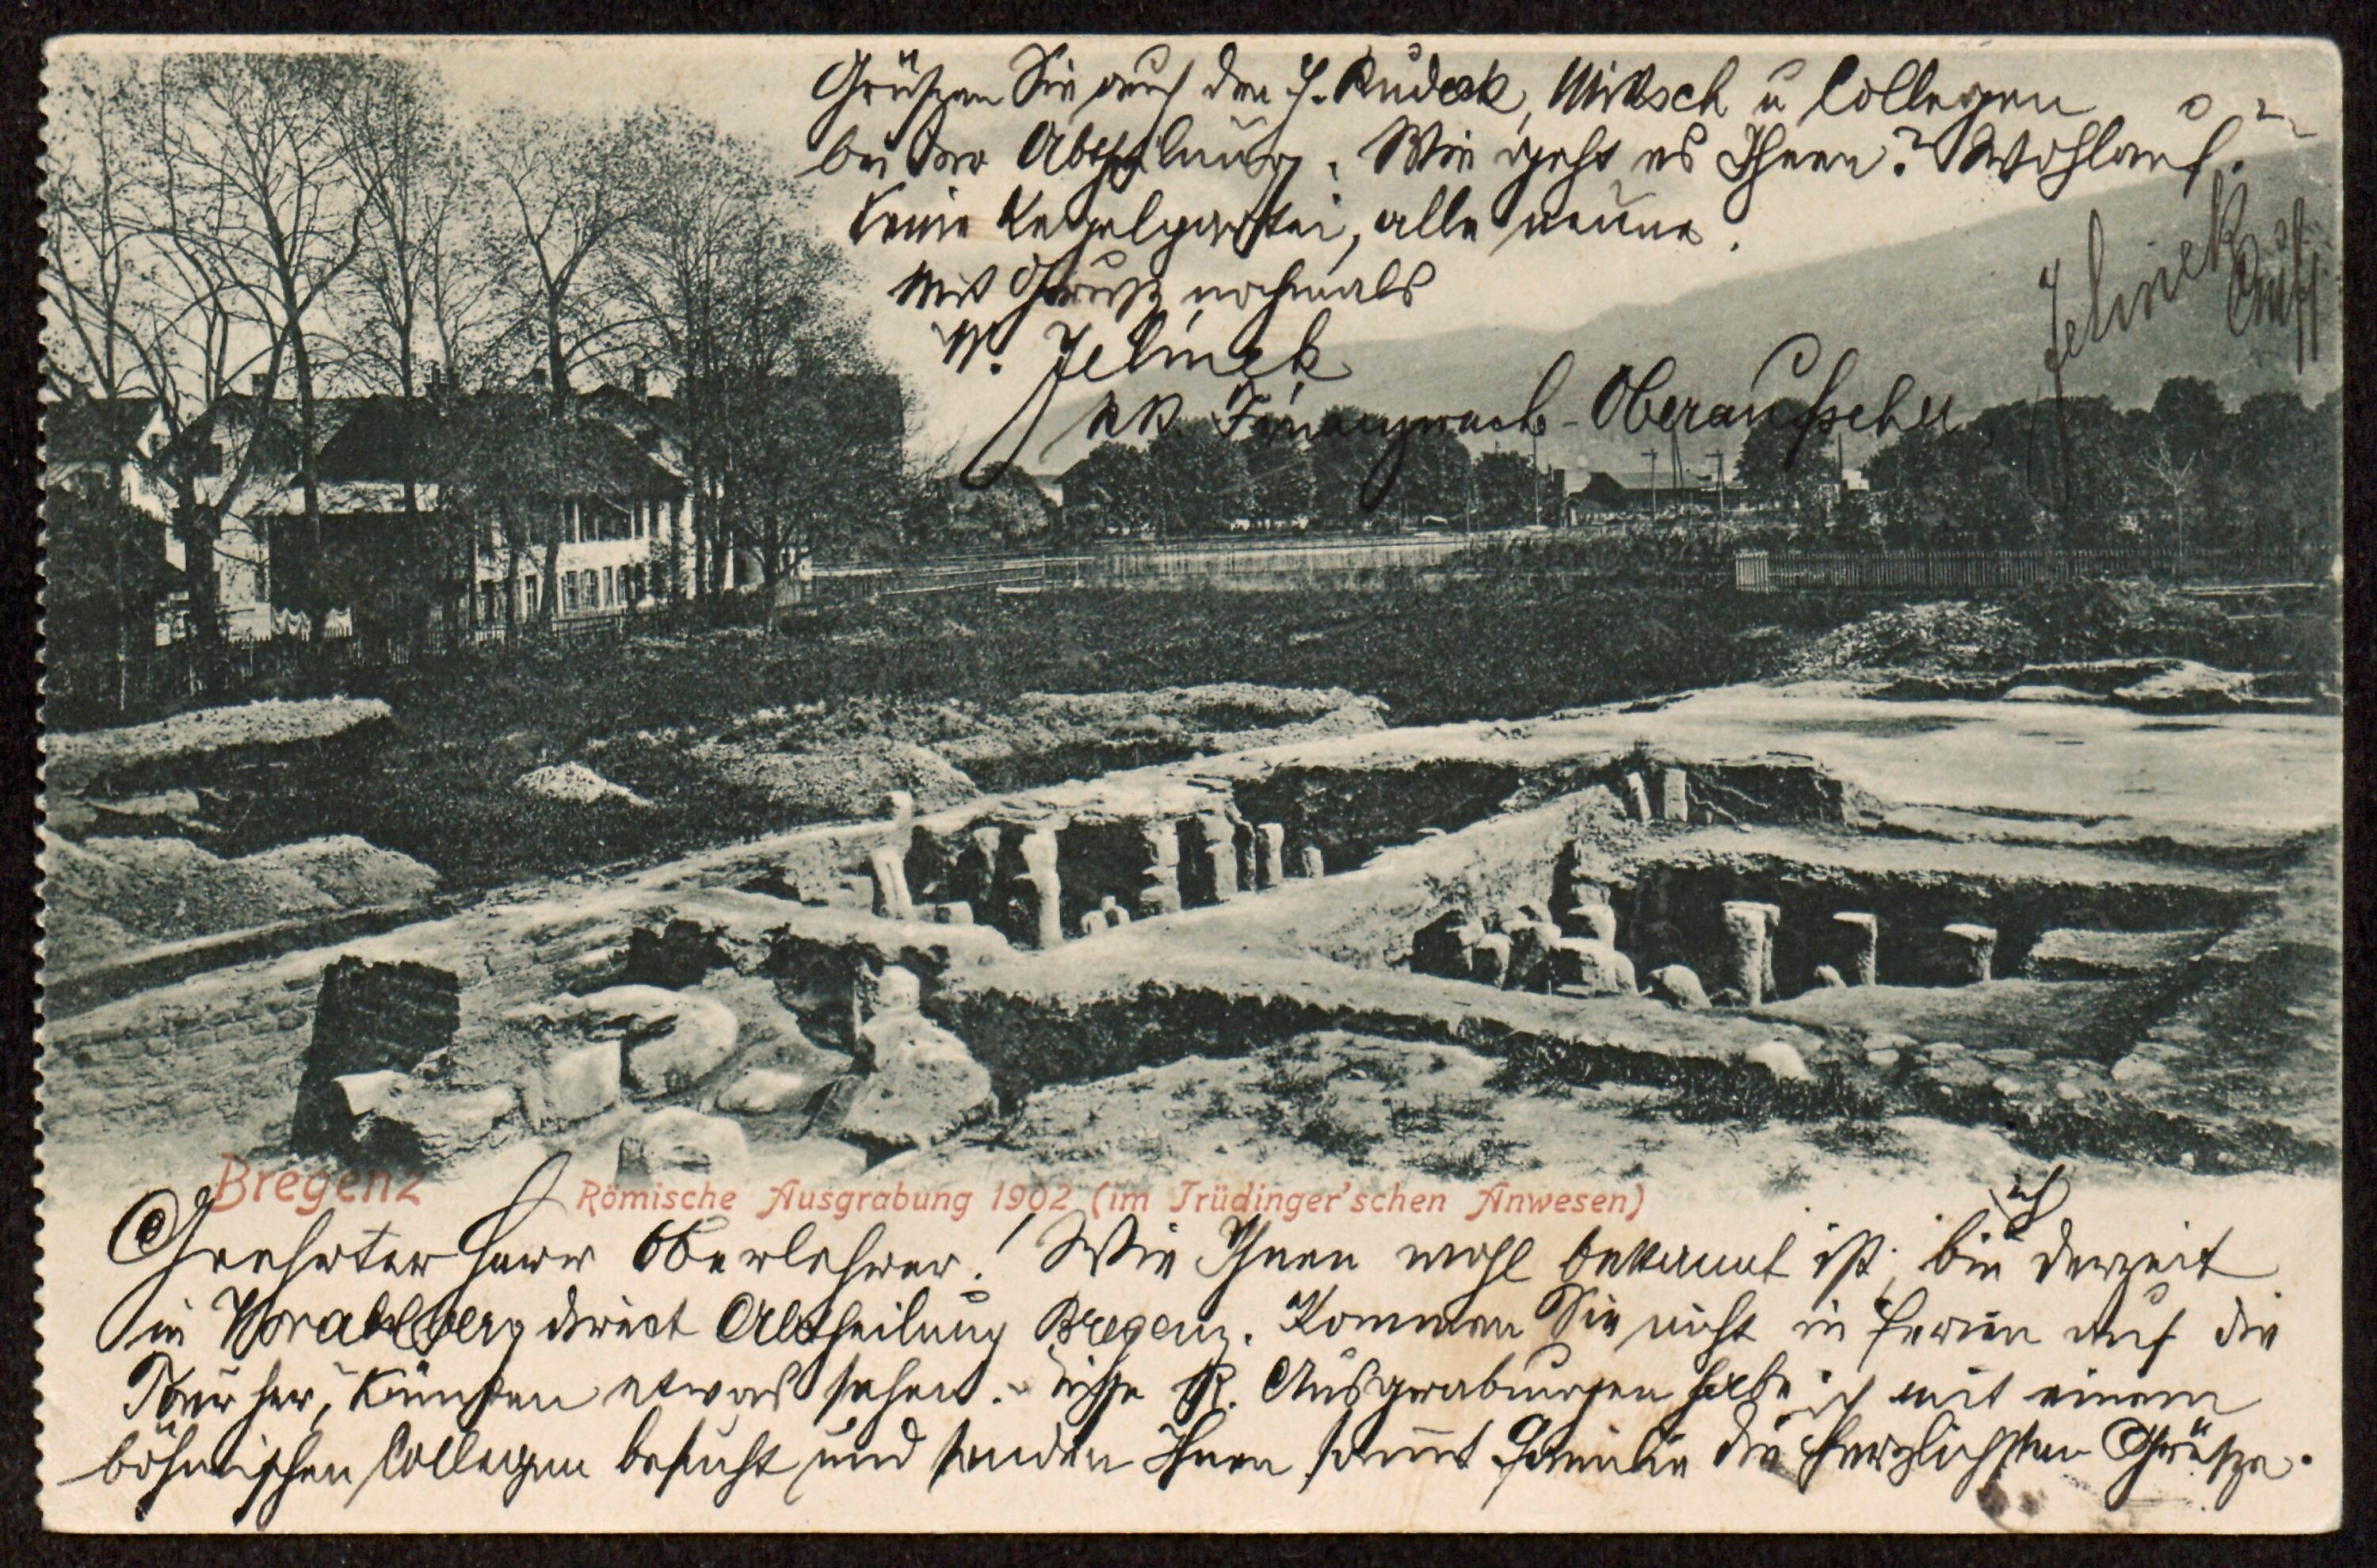 Grüßen Sie auch den H. Rudek, Mittsch u Collegen
bei der Abtheilung. Wie geht es Ihnen? Wohlauf.
Keine Kegelpartei, alle neune.
Mit Gruß nochmals
Jelinek
kk. Finanzwach-Oberaufseher,
Jelinek
Bregenz
Römische Ausgrabung 1902 (im Trüdinger'schen Anwesen)
Geehrter Herr Oberlehrer! Wie Ihnen wohl bekannt ist, bin ich derzeit
in Vorarlberg dirict Abtheilung Bregenz. Kommen Sie nicht in Ferien auf die
her, etwas sehen. R. Ausgrabungen habe ich mit einem
böhmischen Collegen besucht und senden Ihnen sammt Familie die herzlichsten Grüße.